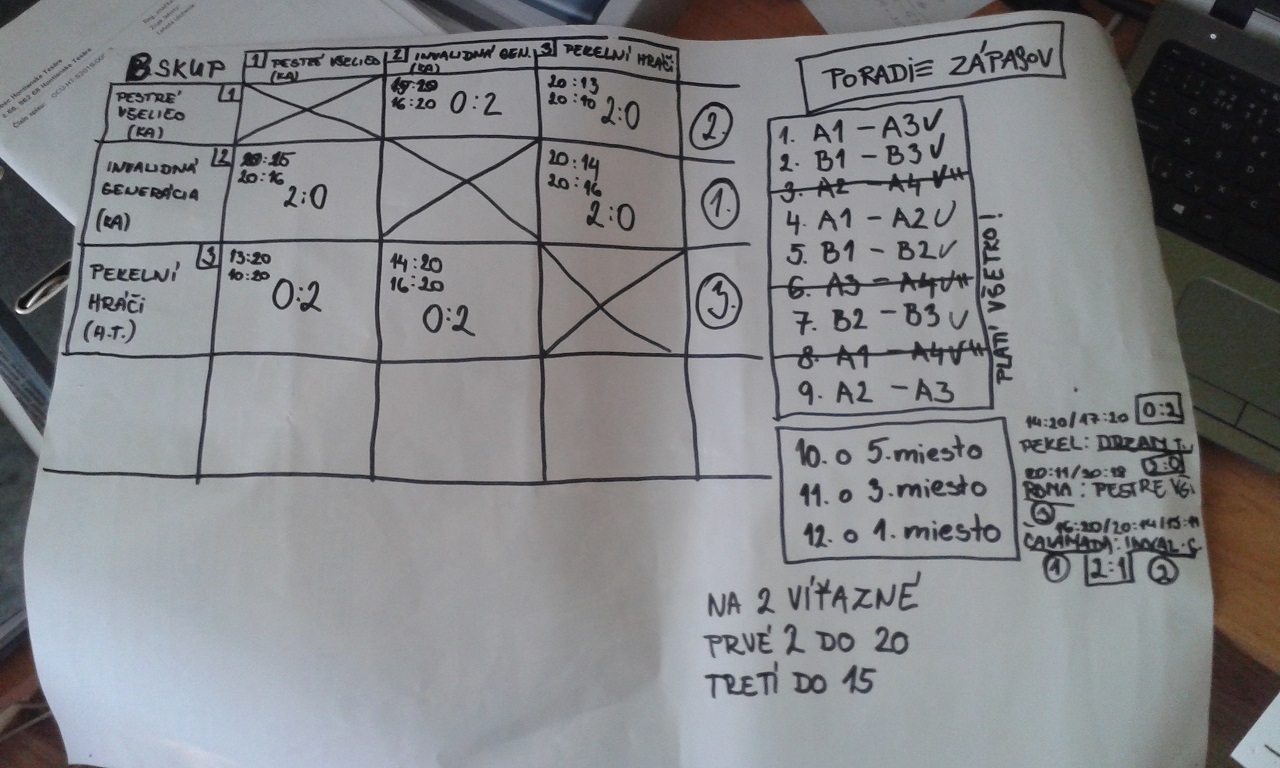 B SKUP
1 PESTRÉ VŠELIČO (KA)
2 INVALIDNÁ GEN. (KA)
3 PEKELNÍ HRÁČI
PESTRÉ 1
VŠELIČO
(KA)
16:20 0:2
20:13
20:10 2:0
2.
INVALIDNÁ 2
GENERÁCIA
(KA)
20:16
2:0
20:14
20:16
2:0
1.
PEKELNÍ 3
HRÁČI
(A.T.)
13:20
10:20
0:2
14:20
16:20
0:2
3.
PORADIE ZÁPASOV
1. A1 - A3 ✓
2. B1 - B3 ✓
3. A2 - A4 ✓
4. A1 - A2 ✓
5. B1 - B2 ✓
6. A3 - A4 ✓
7. B2 - B3 ✓
8. A1 - A4 ✓
9. A2 - A3
PLATÍ VŠETKO!
10. o 5. miesto
11. o 3. miesto
12. o 1. miesto
14:20/17:20 0:2
PEKEL:
2:0
: PESTRE VŠ.
16:20/20:14/15:11
ČALAMADA: INVAL. G
1 2:1 2
NA 2 VÍŤAZNÉ
PRVÉ 2 DO 20
TRETÍ DO 15